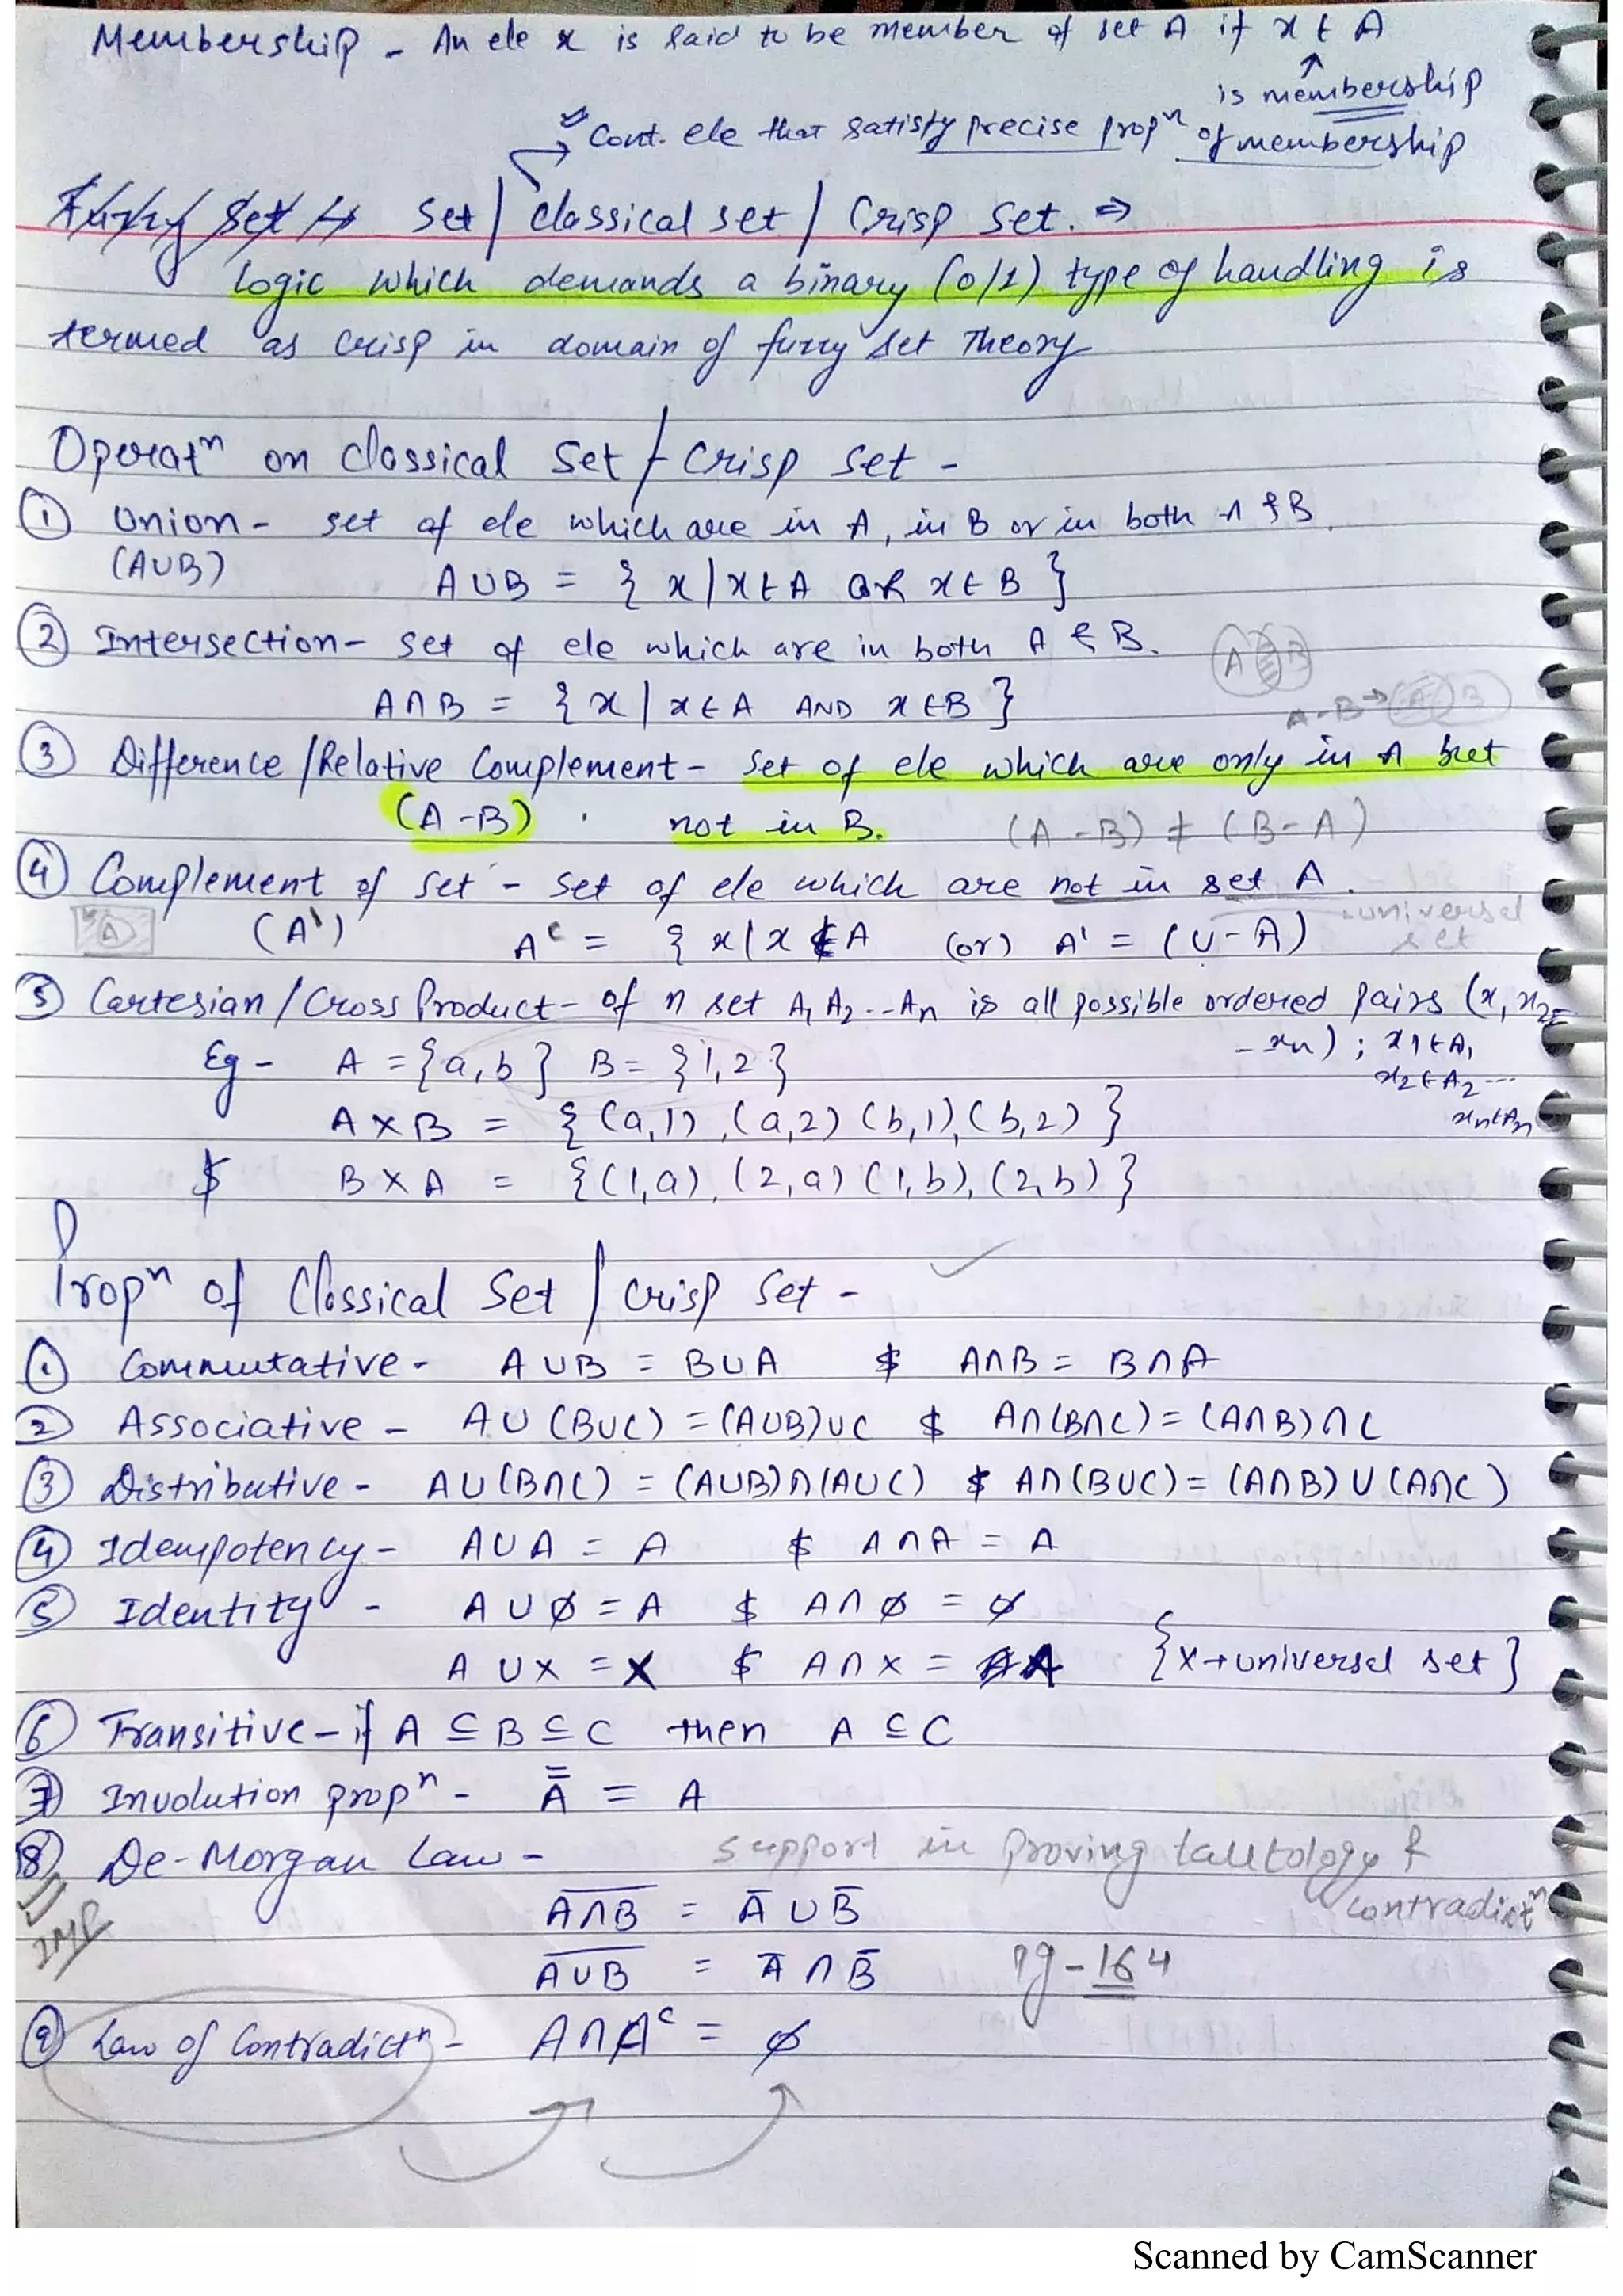 Membership - An ele x is said to be member of set A if x ∈ A
↑
is membership
→ Cont. ele that satisfy precise propⁿ of membership
Fuzzy Set ↦ Set / classical set / Crisp Set. ⇒
logic which demands a binary (0/1) type of handling is
termed as crisp in domain of fuzzy set Theory
Operatⁿ on classical Set / Crisp Set -
① Union - set of ele which are in A, in B or in both A & B.
(A∪B)
A∪B = { x | x ∈ A OR x ∈ B }
② Intersection - set of ele which are in both A & B.
A B
A∩B = { x | x ∈ A AND x ∈ B }
A-B → A B
③ Difference / Relative Complement - set of ele which are only in A but
(A-B) not in B. (A-B) ≠ (B-A)
④ Complement of set - set of ele which are not in set A.
A (A') Aᶜ = { x | x ∉ A (or) A' = (U-A) universal set
⑤ Cartesian / Cross Product - of n set A₁ A₂ .. An is all possible ordered pairs (x, x₂
- xn) ; x1 ∈ A₁
x₂ ∈ A₂ ---
xn ∈ An
Eg - A = {a, b} B = {1, 2}
A × B = { (a,1), (a,2) (b,1), (b,2) }
$ B × A = { (1,a), (2,a) (1,b), (2,b) }
Propⁿ of Classical Set / crisp Set -
① Commutative - A∪B = B∪A $ A∩B = B∩A
② Associative - A∪(B∪C) = (A∪B)∪C $ A∩(B∩C) = (A∩B)∩C
③ Distributive - A∪(B∩C) = (A∪B)∩(A∪C) $ A∩(B∪C) = (A∩B)∪(A∩C)
④ Idempotency - A∪A = A $ A∩A = A
⑤ Identity - A∪∅ = A $ A∩∅ = ∅
A∪X = X $ A∩X = A {X → universal set}
⑥ Transitive - if A ⊆ B ⊆ C then A ⊆ C
⑦ Involution propⁿ - A̿ = A
⑧ De-Morgan Law - support in proving tautology & contradictⁿ
IMP
A̅∩̅B̅ = A̅ ∪ B̅
A̅∪̅B̅ = A̅ ∩ B̅ Pg - 164
⑨ Law of Contradictⁿ - A∩Aᶜ = ∅
Scanned by CamScanner